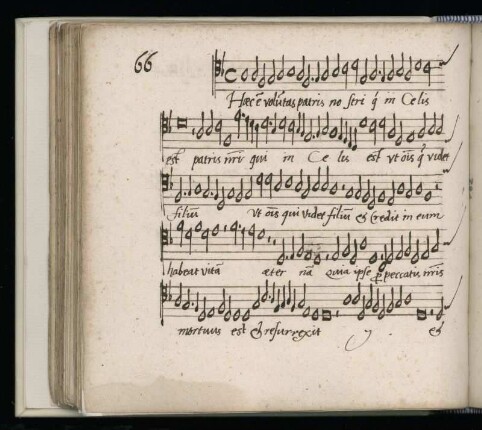 66
Hæc ē volūtas patris no stri q̄ in Cełis
est patris nr̄i qui in Ce lis est vt oīs q̄ videt
filiū vt oīs qui videt filiū & credit in eum
habeat vitā æter nā Quia ipse ꝑ peccatis nr̄is
mortuus est & resurrexit ij &